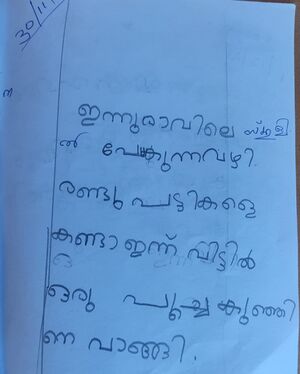 30/11/
ന
ഇന്നുരാവിലെ സ്കൂളി
ൽ പേകുന്നവഴി.
രണ്ടു പട്ടികളെ
കണ്ടാ ഇന്ന് വീട്ടിൽ
ഒരു പൂച്ചകുഞ്ഞി
ണ വാങ്ങി.